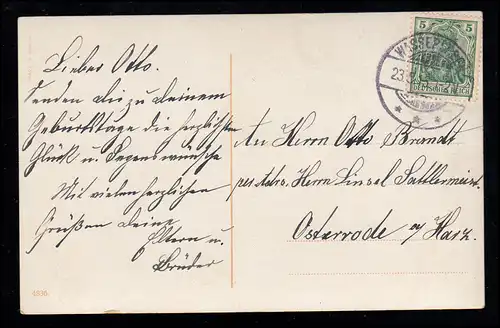 Lieber Otto.
Senden Dir zu Deinem
Geburtstage die herzlichsten
Glück u. Segenswünsche
Mit vielen herzlichen
Grüßen Deine
Eltern u.
Brüder
4836
5 5
DEUTSCHES REICH
WASSER
23
An Herrn Otto Brandt
Herrn Linsel Sattlermeist.
Osterrode a/ Harz.